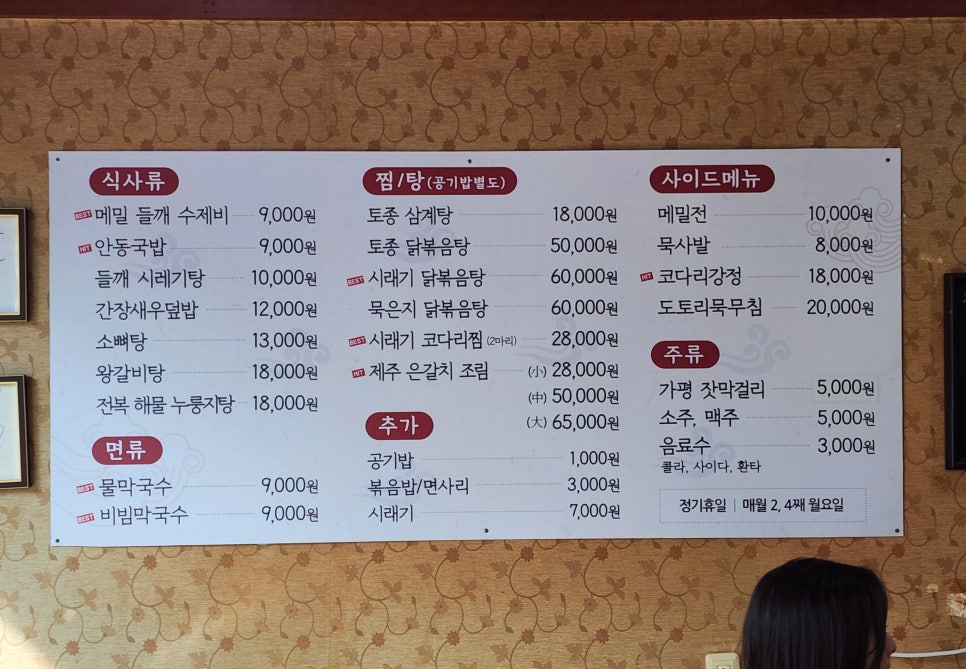 식사류
BEST 메밀 들깨 수제비 9,000원
HIT 안동국밥 9,000원
들깨 시레기탕 10,000원
간장새우덮밥 12,000원
소뼈탕 13,000원
왕갈비탕 18,000원
전복 해물 누룽지탕 18,000원
면류
BEST 물막국수 9,000원
BEST 비빔막국수 9,000원
찜/탕(공기밥별도)
토종 삼계탕 18,000원
토종 닭볶음탕 50,000원
BEST 시래기 닭볶음탕 60,000원
묵은지 닭볶음탕 60,000원
BEST 시래기 코다리찜 (2마리) 28,000원
HIT 제주 은갈치 조림 (小) 28,000원
(中) 50,000원
(大) 65,000원
추가
공기밥 1,000원
볶음밥/면사리 3,000원
시래기 7,000원
사이드메뉴
메밀전 10,000원
묵사발 8,000원
HIT 코다리강정 18,000원
도토리묵무침 20,000원
주류
가평 잣막걸리 5,000원
소주, 맥주 5,000원
음료수 3,000원
콜라, 사이다, 환타
정기휴일 | 매월 2, 4째 월요일